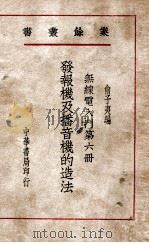 業餘叢書
俞子夷編
無線電入門第六冊
發報機及播音機的造法
中華書局印行